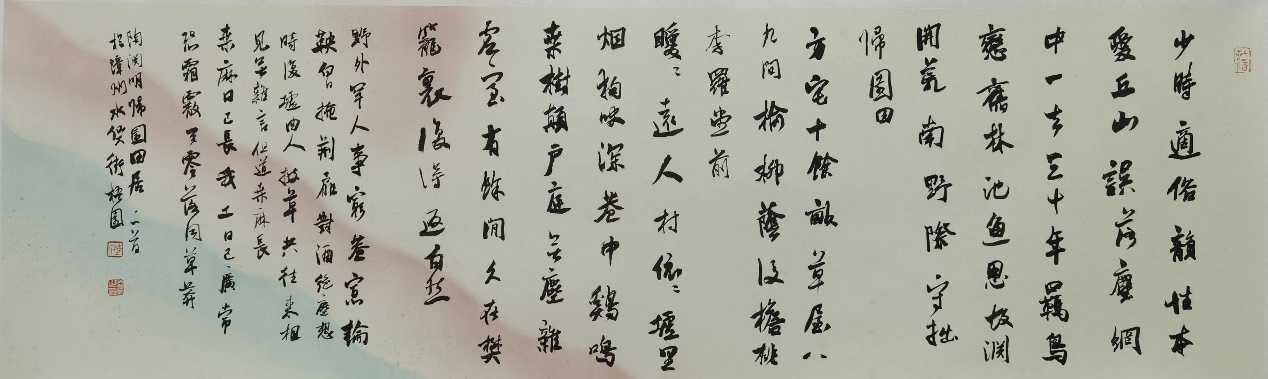 少時適俗韻性本
愛丘山誤落塵網
中一去三十年羈鳥
戀舊林池魚思故淵
開荒南野際守拙
歸園田
方宅十餘畝草屋八
九間榆柳蔭後檐桃
李羅堂前
曖曖遠人村依依墟里
烟狗吠深巷中鷄鳴
桑樹顛户庭無塵雜
虛室有餘閒久在樊
籠裏復得返自然
野外罕人事窮巷寡輪
鞅白日掩荆扉對酒絶塵想
時復墟曲人披草共往來相
見無雜言但道桑麻長
桑麻日已長我土日已廣常
恐霜霰至零落同草莽
陶淵明歸園田居二首
於漳州水仙花街